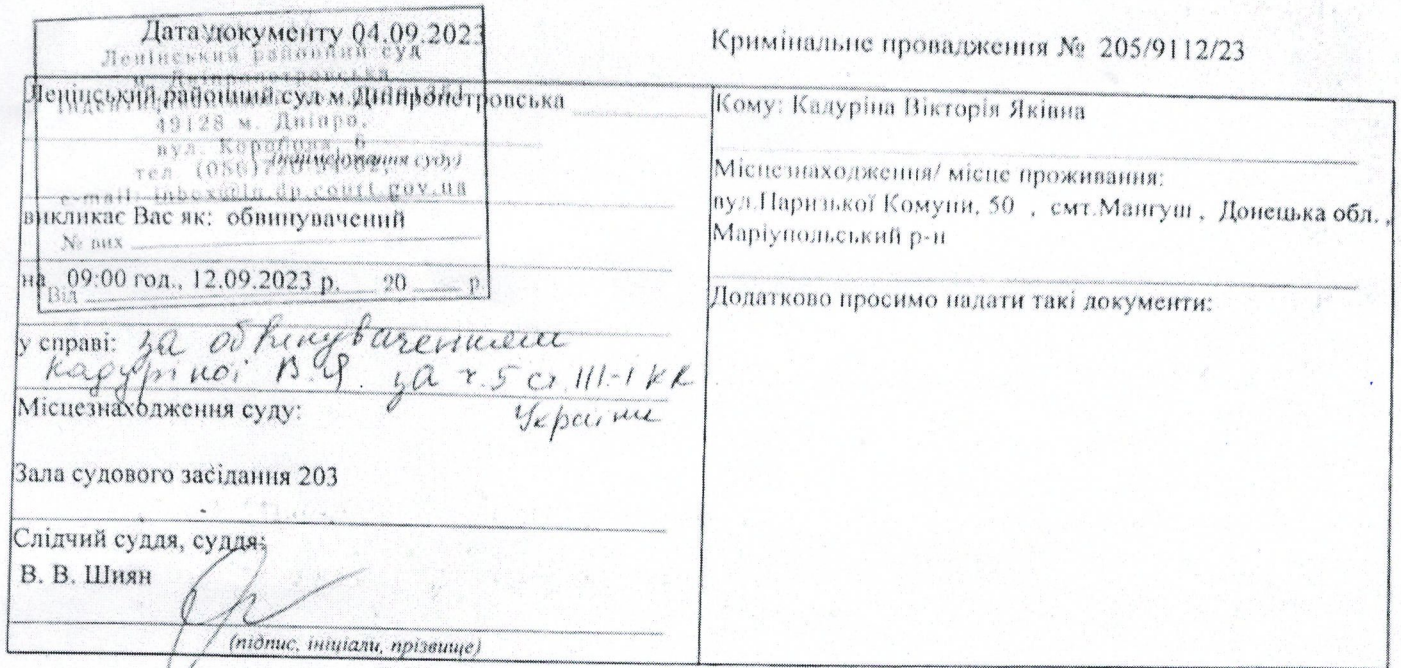 Дата документу 04.09.2023
Кримінальне провадження № 205/9112/23
Ленінський районний суд
м. Дніпропетровська
49128 м. Дніпро,
вул. Коробова, 6
тел. (056)
e-mail: inbox@ln.dp.court.gov.ua
№ вих
Від 20 р.
Ленінський районний суд м. Дніпропетровська
(найменування суду)
викликає Вас як: обвинувачений
на 09:00 год., 12.09.2023 р.
у справі: за обвинуваченням
Кадуріної В.Я. за ч.5 ст.111-1 КК
України
Місцезнаходження суду:
Зала судового засідання 203
Слідчий суддя, суддя:
В. В. Шиян
(підпис, ініціали, прізвище)
Кому: Кадуріна Вікторія Яківна
Місцезнаходження/ місце проживання:
вул.Паризької Комуни, 50 , смт.Мангуш , Донецька обл. ,
Маріупольський р-н
Додатково просимо надати такі документи: